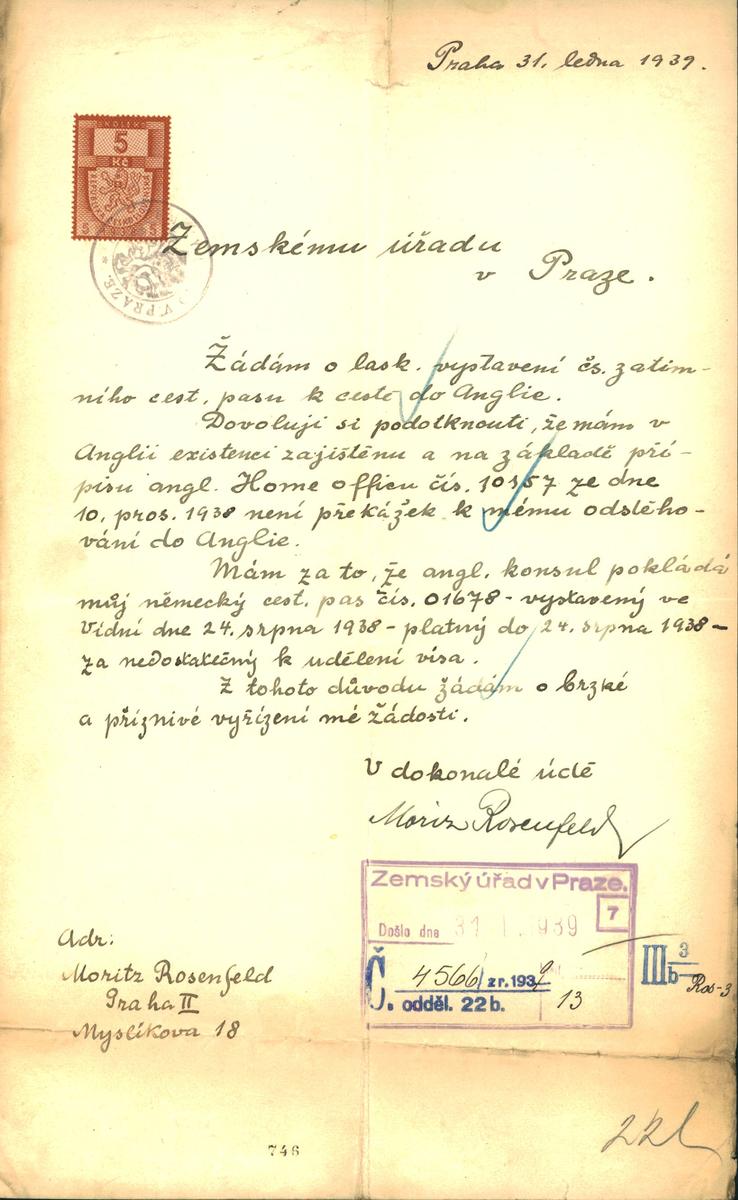 Praha 31. ledna 1939.
KOLEK
5
Kč
Zemskému úřadu
v Praze.
V PRAZE
Žádám o lask. vystavení čs. zatim-
ního cest. pasu k cestě do Anglie.
Dovoluji si podotknouti, že mám v
Anglii existenci zajištěnu a na základě pří-
pisu angl. Home officu čís. 10357 ze dne
10. pros. 1938 není překážek k mému odstěho-
vání do Anglie.
Mám za to, že angl. konsul pokládá
můj německý cest. pas čís. 01678 - vystavený ve
Vídni dne 24. srpna 1938 - platný do 24. srpna 1938 -
za nedostatečný k udělení visa.
Z tohoto důvodu žádám o brzké
a příznivé vyřízení mé žádosti.
V dokonalé úctě
Moriz Rosenfeld
Zemský úřad v Praze.
7
Došlo dne 31 I. 1939
Č. 4566/ z r. 1939
odděl. 22b. 13
III 3
b
Ros-3
Adr:
Moritz Rosenfeld
Praha II
Myslíkova 18
746